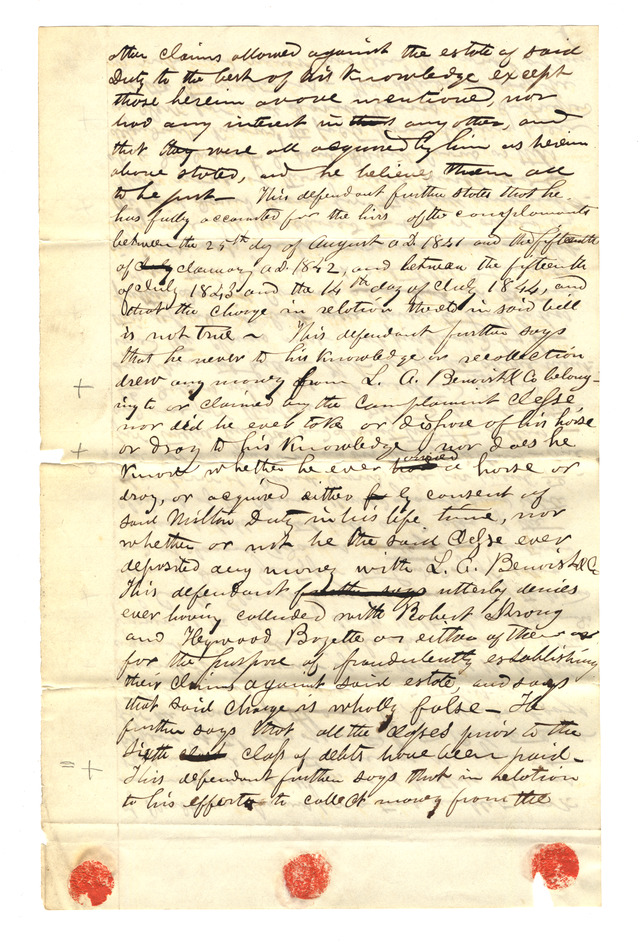 other claims allowed against the estate of said
Duty to the best of his knowledge except
those herein above mentioned, nor
had any interest in any other, and
that they were all acquired by him as herein
above stated, and he believes them all
to be just - This defendant further states that he
has fully accounted for the hire of the complainants
between the 25th day of August A.D. 1841 and the fifteenth
of January A.D. 1842, and between the fifteenth
of July 1843 and the 14th day of July 1844, and
that the charge in relation thereto in said bill
is not true - This defendant further says
that he never to his knowledge or recollection
drew any money from L. A. Benoist & Co belong-
ing to or claimed by the complainant Jesse
nor did he ever take or dispose of his horse
or dray to his knowledge, nor does he
know whether he ever owned a horse or
dray, or acquired either by consent of
said Milton Duty in his life time, nor
whether or not he the said Jesse ever
deposited any money with L. A. Benoist & Co
This defendant further says utterly denies
ever having colluded with Robert Strong
and Heywood Bozette or either of them
for the purpose of fraudulently establishing
their claims against said estate, and says
that said charge is wholly false - He
further says that all the classes prior to the
sixth class of debts have been paid -
This defendant further says that in relation
to his efforts to collect money from the